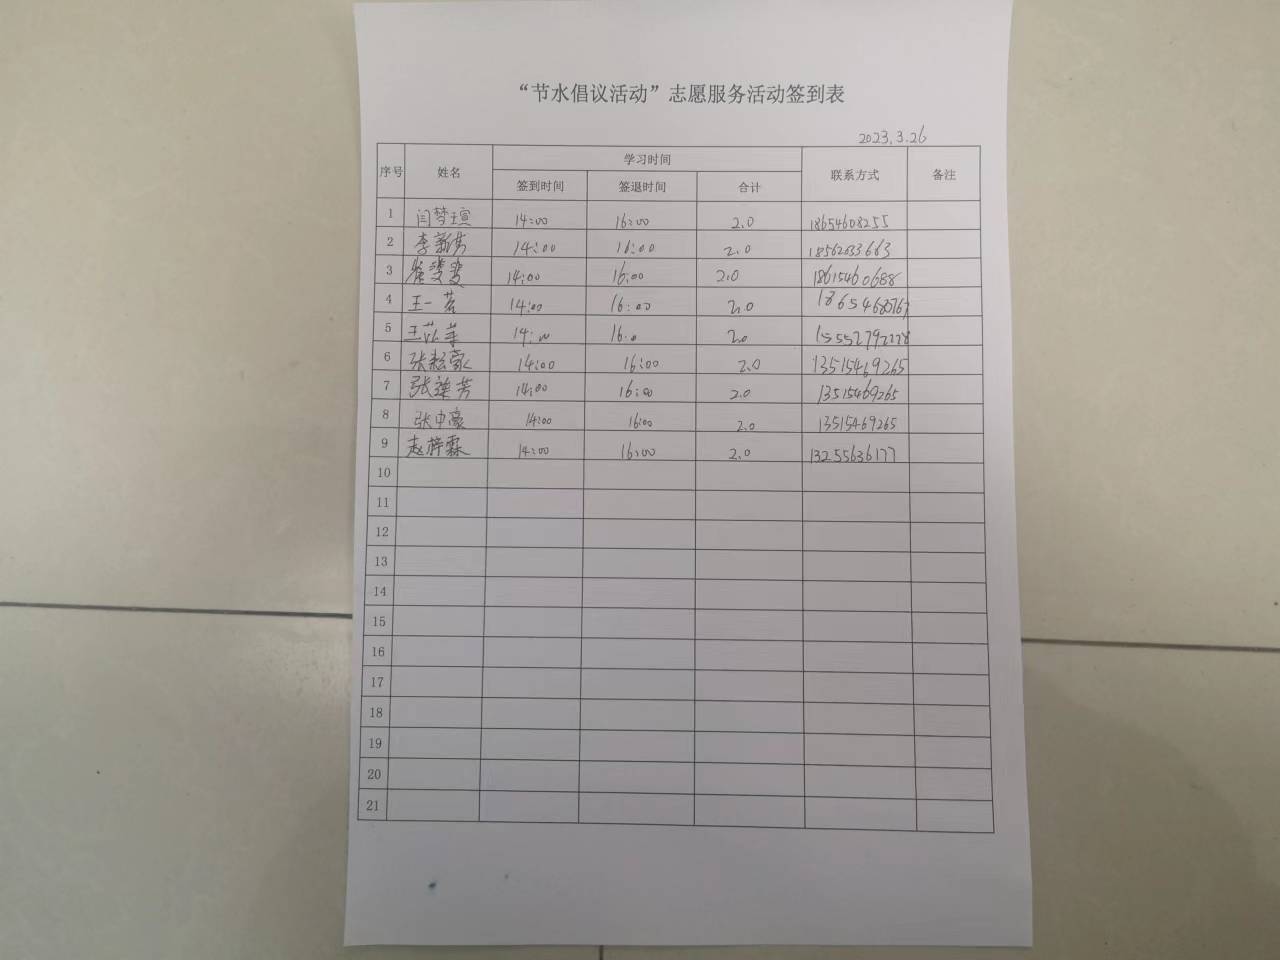 “节水倡议活动”志愿服务活动签到表
2023.3.26
序号 姓名 学习时间 联系方式 备注
签到时间 签退时间 合计
1 闫梦瑄 14:00 16:00 2.0 18654608255
2 李新隽 14:00 16:00 2.0 18562033663
3 14:00 16:00 2.0 18615460688
4 王一茗 14:00 16:00 2.0 18654680767
5 14:00 16:0 2.0 15552792228
6 张耘豪 14:00 16:00 2.0 13515469265
7 张芳 14:00 16:00 2.0 13515469265
8 张中豪 14:00 16:00 2.0 13515469265
9 赵梓霖 14:00 16:00 2.0 13255636177
10
11
12
13
14
15
16
17
18
19
20
21